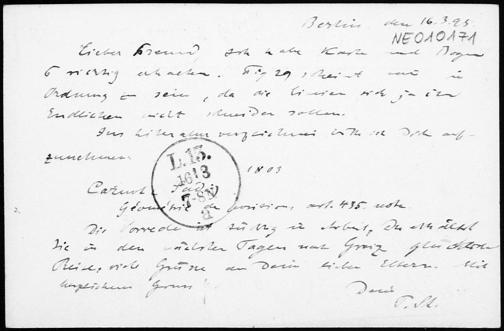 Berlin, den 16.3.25.
NE010171
Lieber Freund, ich habe Karte und Bogen
6 richtig erhalten. Fig 29 scheint mir in
Ordnung zu sein, da die Linien sich ja im
Endlichen nicht schneiden sollen.
Ins Literaturverzeichnis bitte ich Dich auf-
zunehmen
1803
L.13.
16 3
7-8N
Carnot,
Géométrie de position, art. 435 note
Die Vorrede ist in Arbeit, Du erhältst
sie in den nächsten Tagen nach Greiz glückliche
Reise, viele Grüsse an Deine lieben Eltern. Mit
herzlichem Gruss
Dein
P. St.